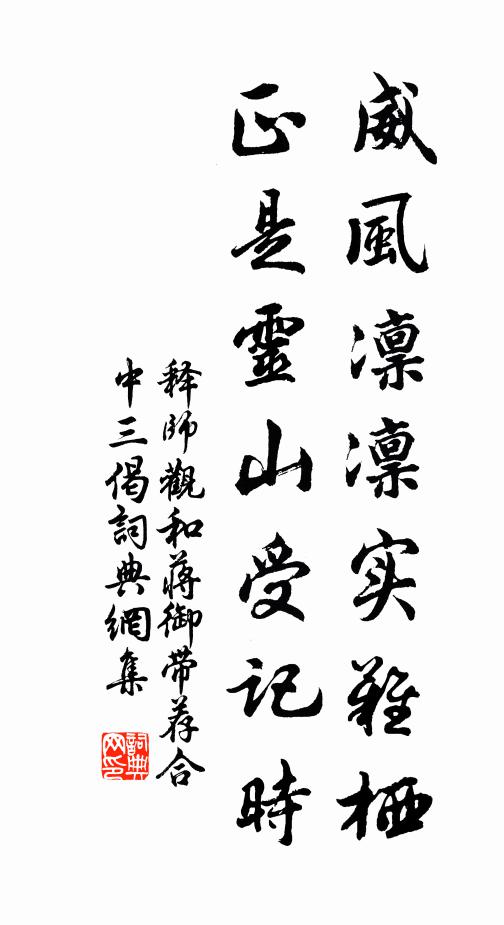 威風凜凜实難栖
正是靈山受記時
释師觀和蔣御帶荐合
中三偈詞典網集
詞典
网印